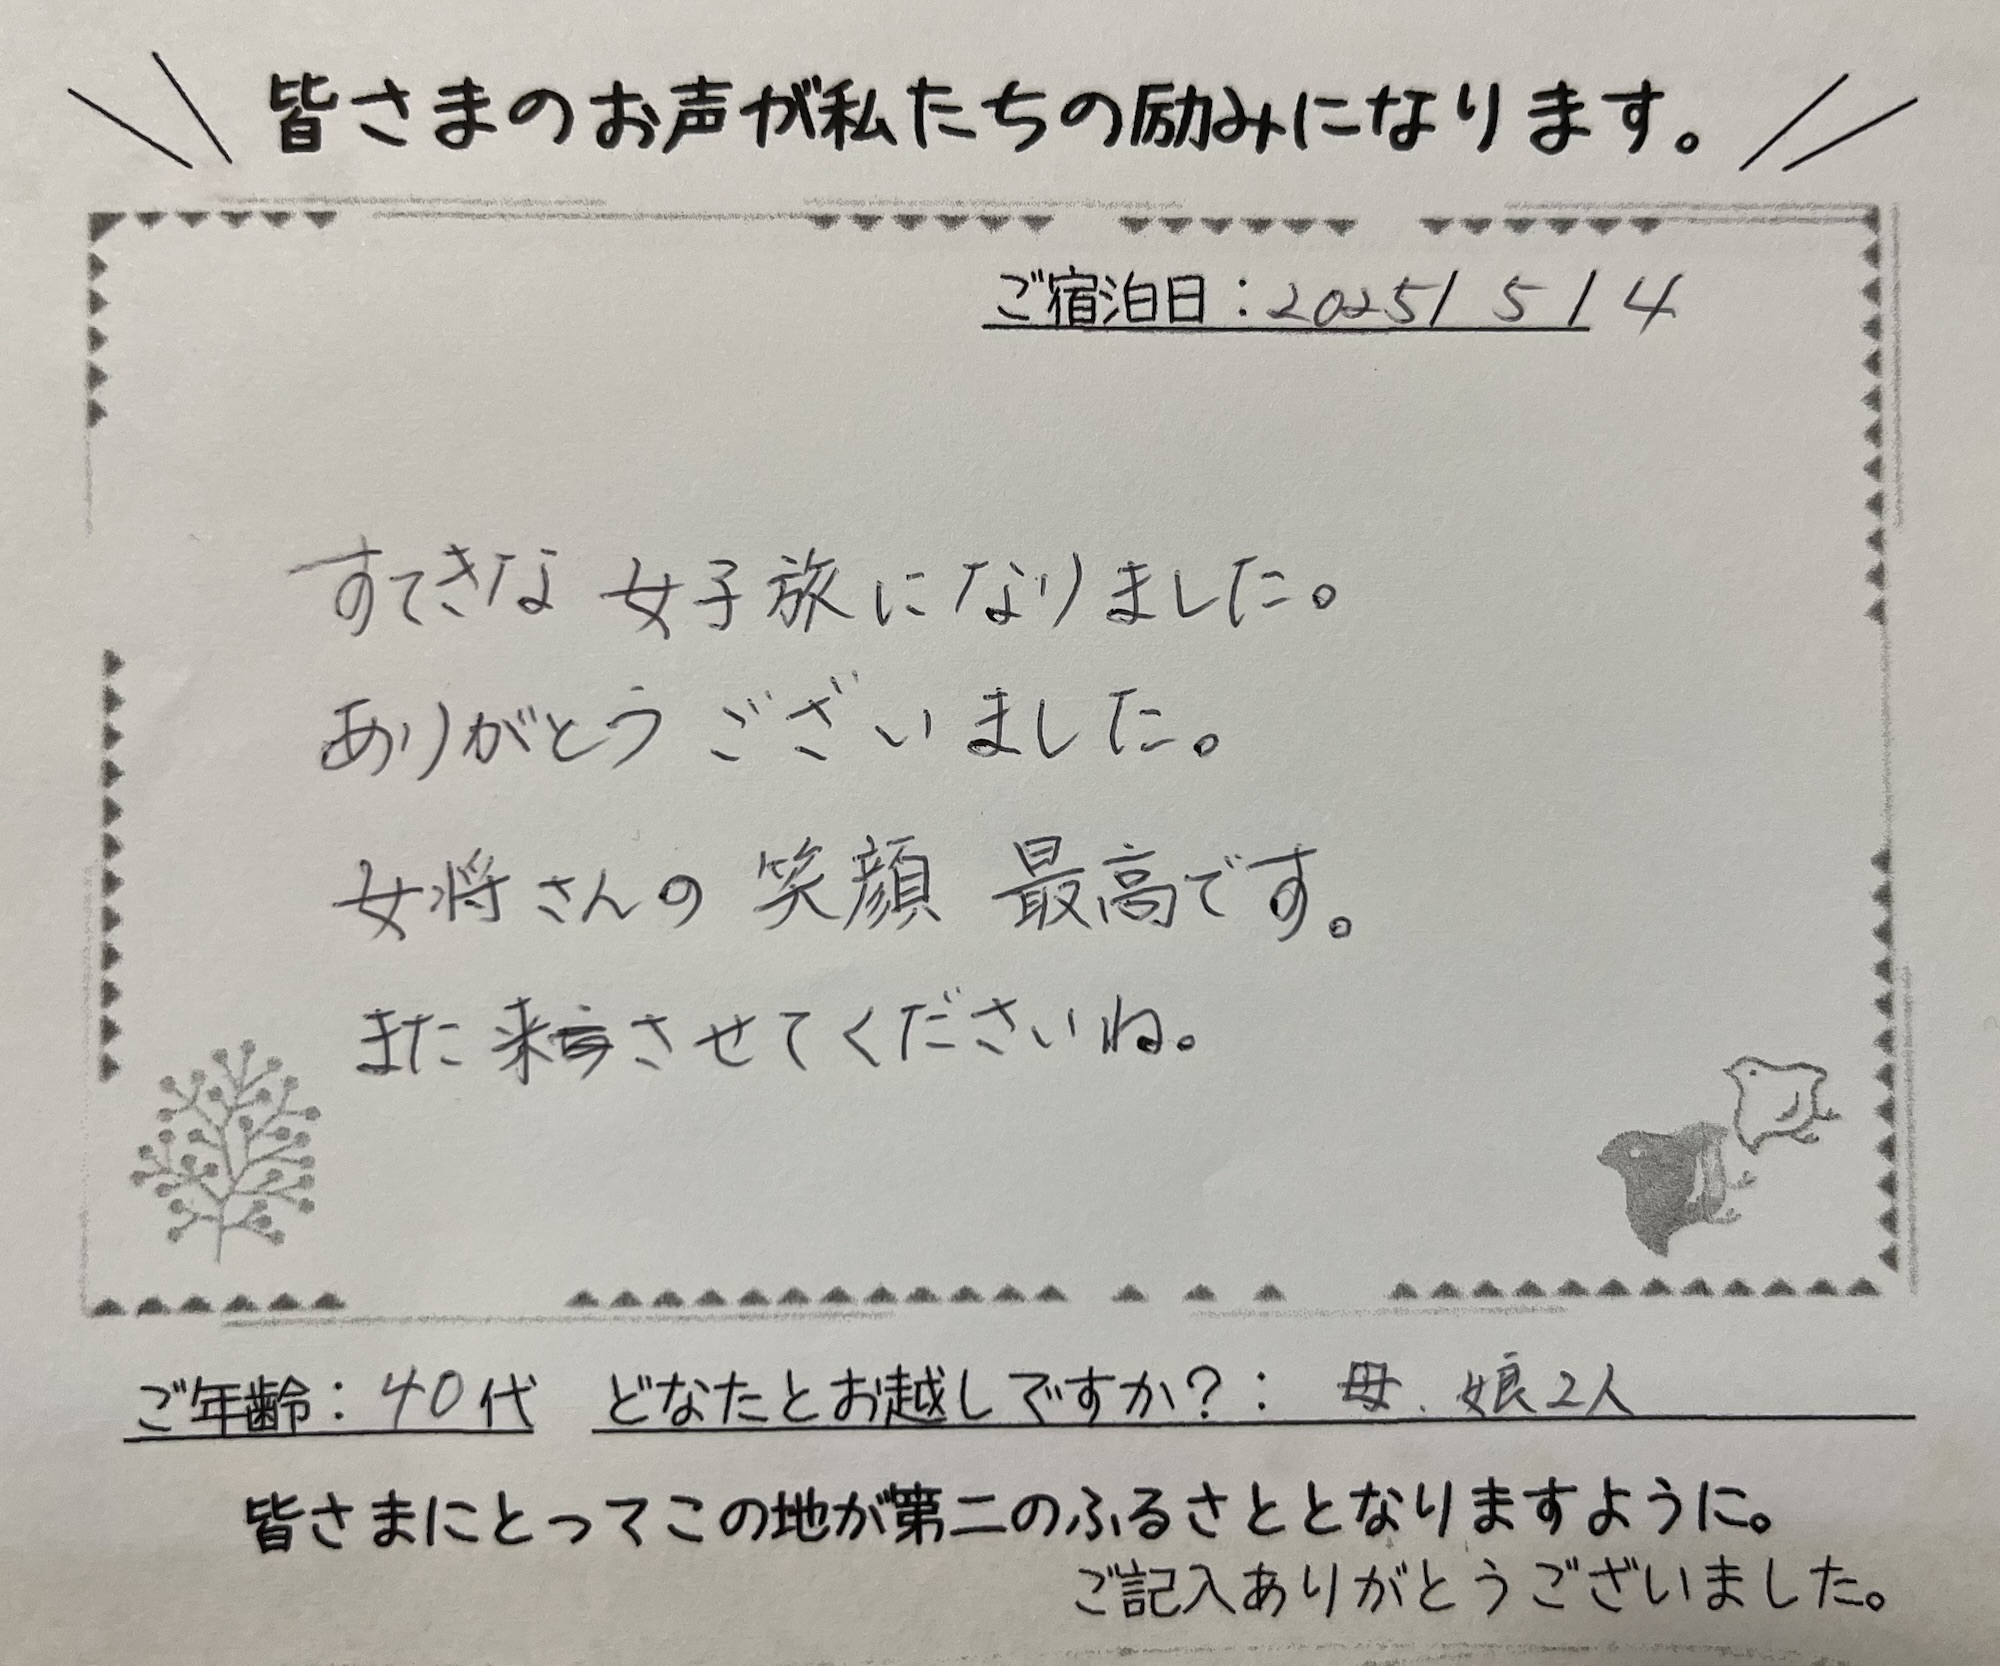 皆さまのお声が私たちの励みになります。
ご宿泊日：2025/ 5 / 4
すてきな 女子旅になりました。
ありがとう ございました。
女将さんの 笑顔 最高です。
また来させてくださいね。
ご年齢：40代 どなたとお越しですか？： 母、娘2人
皆さまにとってこの地が第二のふるさととなりますように。
ご記入ありがとうございました。